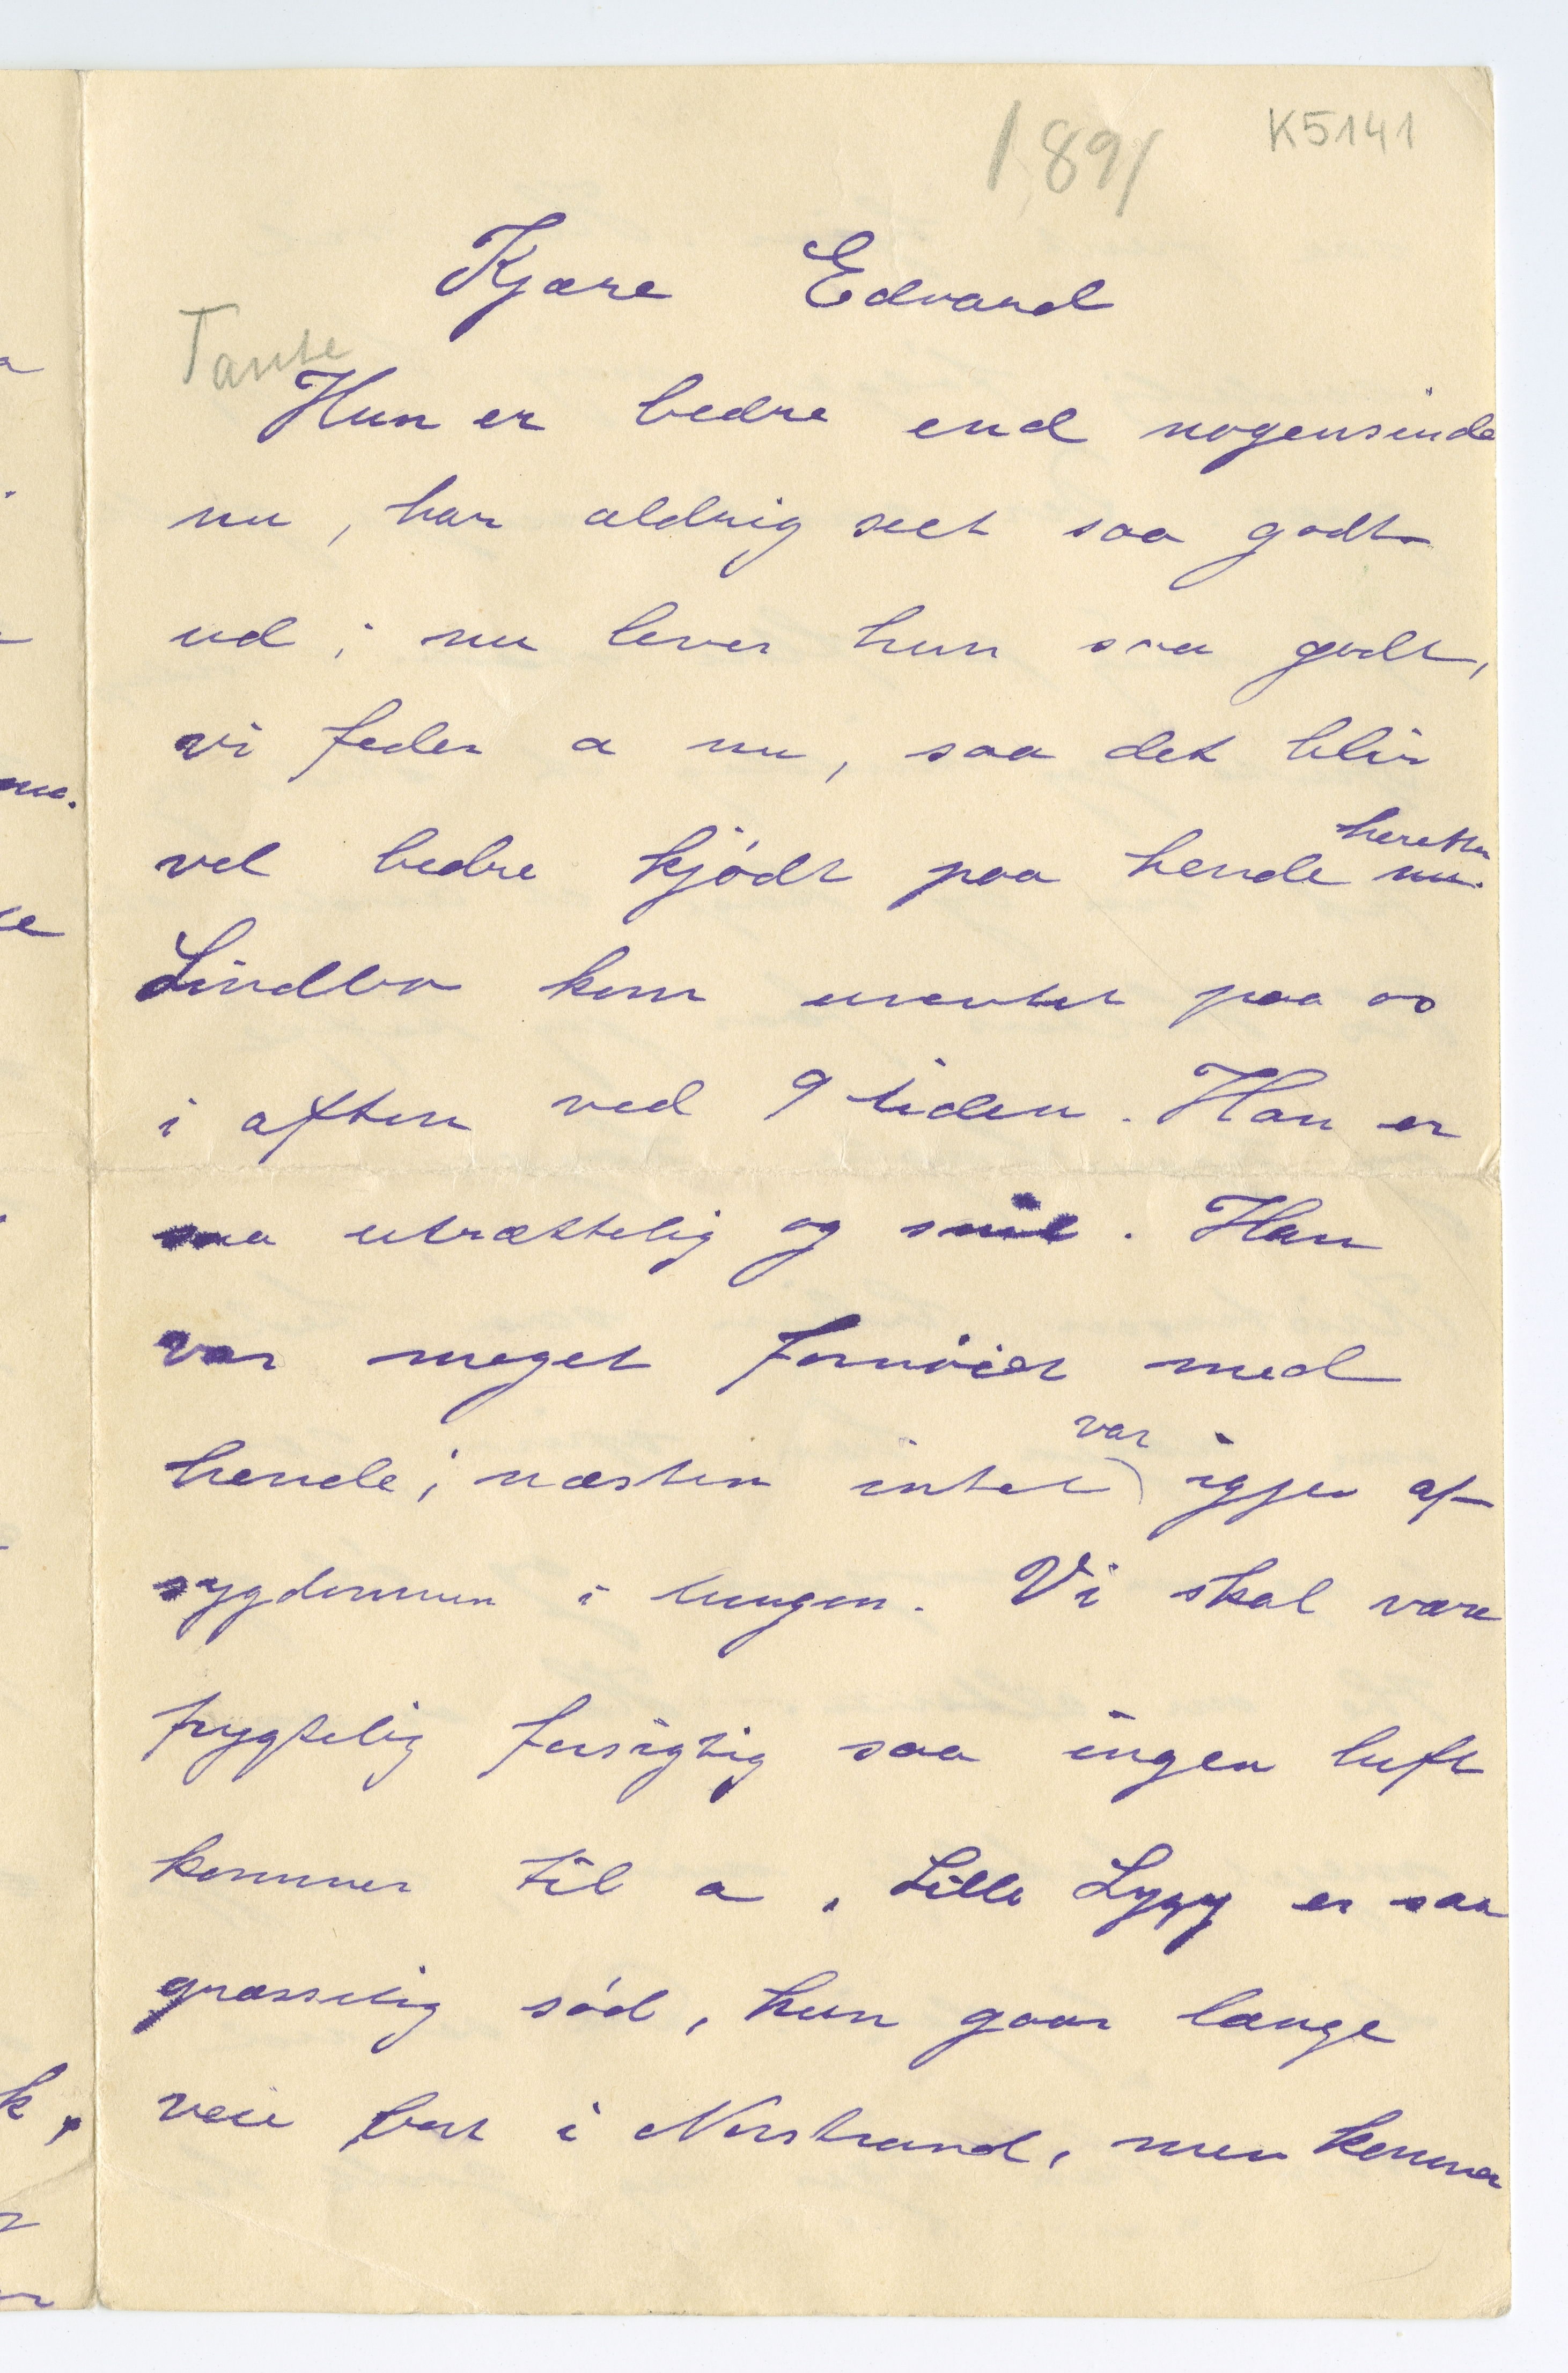 1891 K5141
Kjære Edvard
Tante
Hun er bedre end nogensinde
nu, har aldrig seet saa godt
ud; nu lever hun saa godt,
vi feder a nu, saa det blir
vel bedre kjödt paa hende nu.
herefter
Lindbo kom uventet paa os
i aften ved 9 tiden. Han er
saa utrættelig og snil. Han
var meget fornöiet med
hende; næsten intet var igjen af
sygdommen i lungen. Vi skal være
frygtelig forsigtig saa ingen luft
kommer til a. Lille Lyyy er saa
græsselig söd, hun gaar lange
veie bort i Norstrand, men kommer